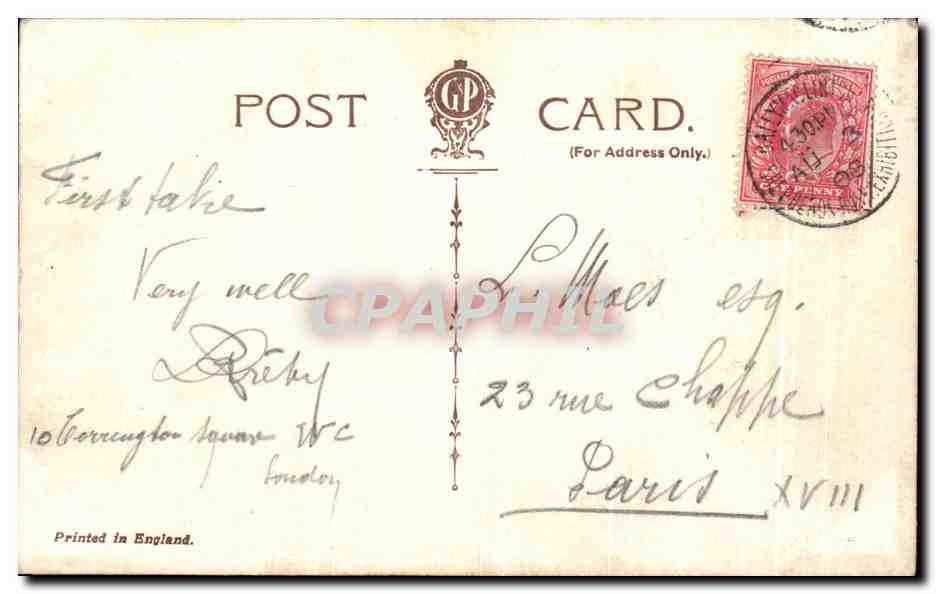 POST CARD.
GP
(For Address Only.)
BALLYMACLINTON
4.30.PM
AU 3
08
EXHIBITION
ONE PENNY
First take
Very well
L. Maes esq.
23 rue Chappe
Paris XVIII
10 Torrington Square WC
London
CPAPHIL
Printed in England.